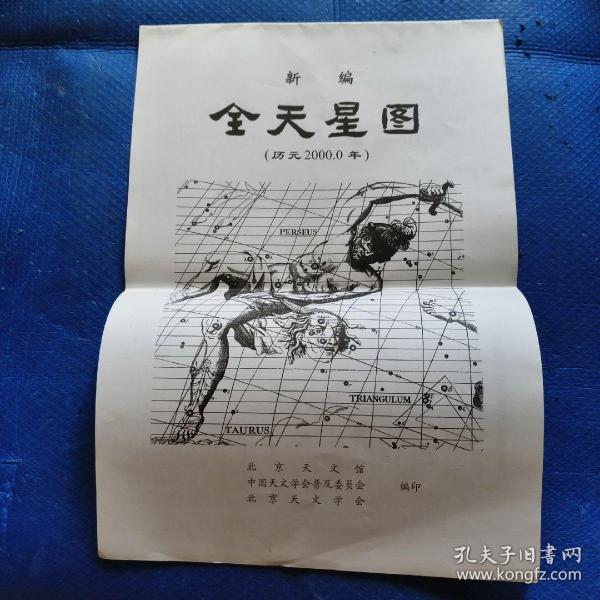 新 编
全天星图
(历元2000.0年)
PERSEUS
TRIANGULUM
TAURUS
北京天文馆
中国天文学会普及委员会 编印
北京天文学会
孔夫子旧书网
www.kongfz.com